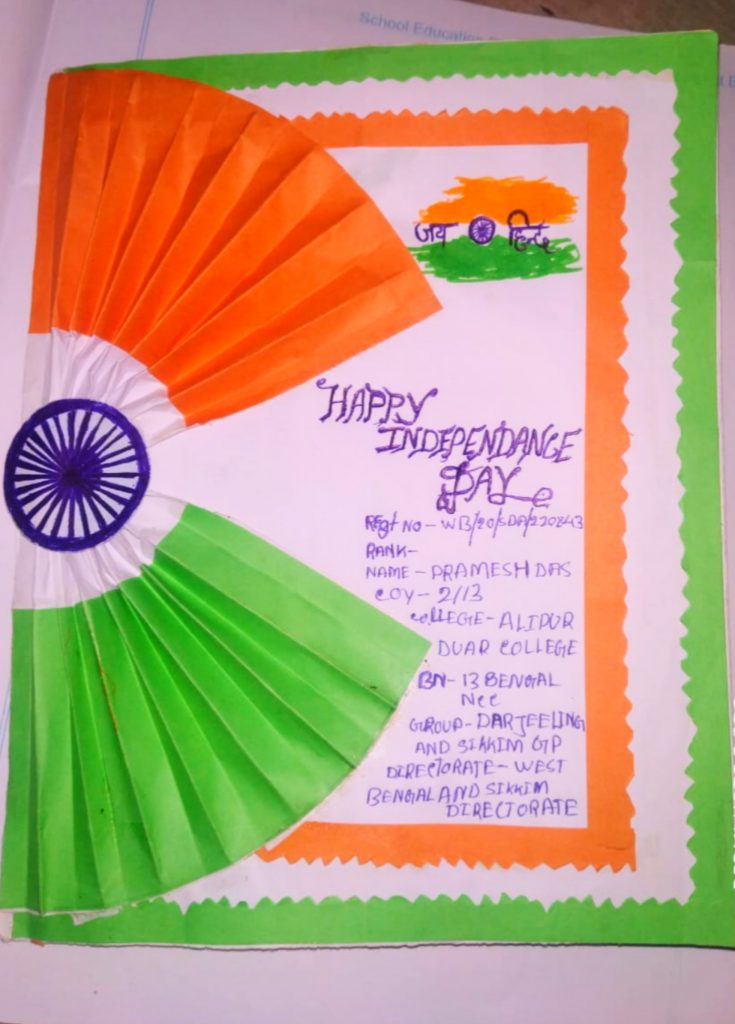 School Education
जय हिन्द
HAPPY
INDEPENDANCE
DAY
Regt NO - WB/20/SDA/220843
RANK-
NAME - PRAMESH DAS
COY - 2/13
COLLEGE - ALIPUR
DUAR COLLEGE
BN - 13 BENGAL
NCC
GROUP - DARJEELING
AND SIKKIM GP
DIRECTORATE - WEST
BENGAL AND SIKKIM
DIRECTORATE